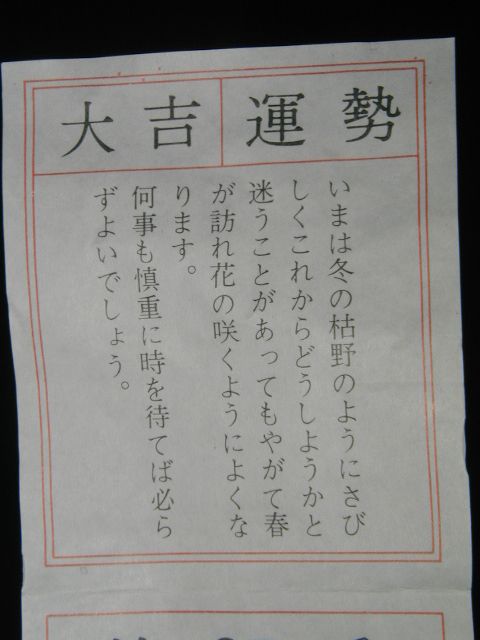 運勢
大吉
いまは冬の枯野のようにさび
しくこれからどうしようかと
迷うことがあってもやがて春
が訪れ花の咲くようによくな
ります。
何事も慎重に時を待てば必ら
ずよいでしょう。